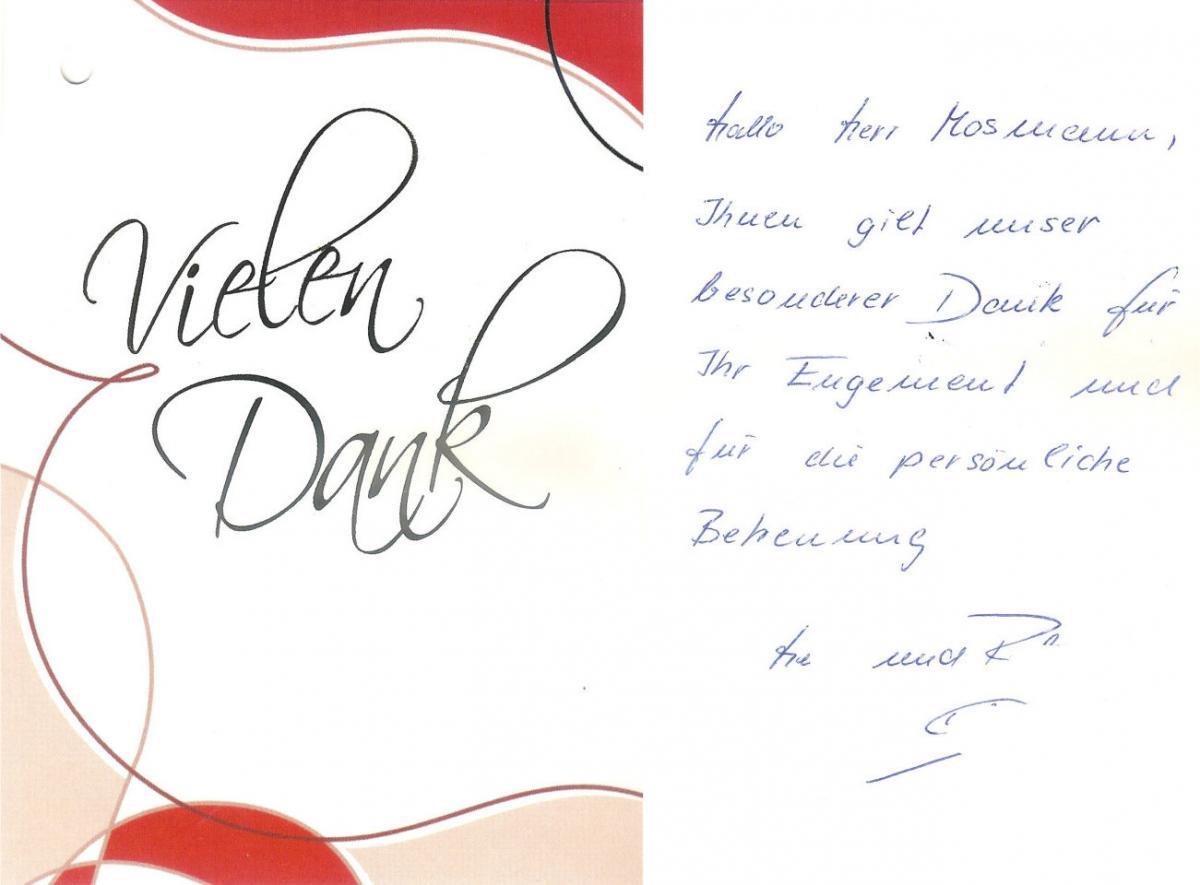 Vielen
Dank
Hallo Herr Mosmann,
Ihnen gilt unser
besonderer Dank für
Ihr Engement und
für die persönliche
Betreuung
und